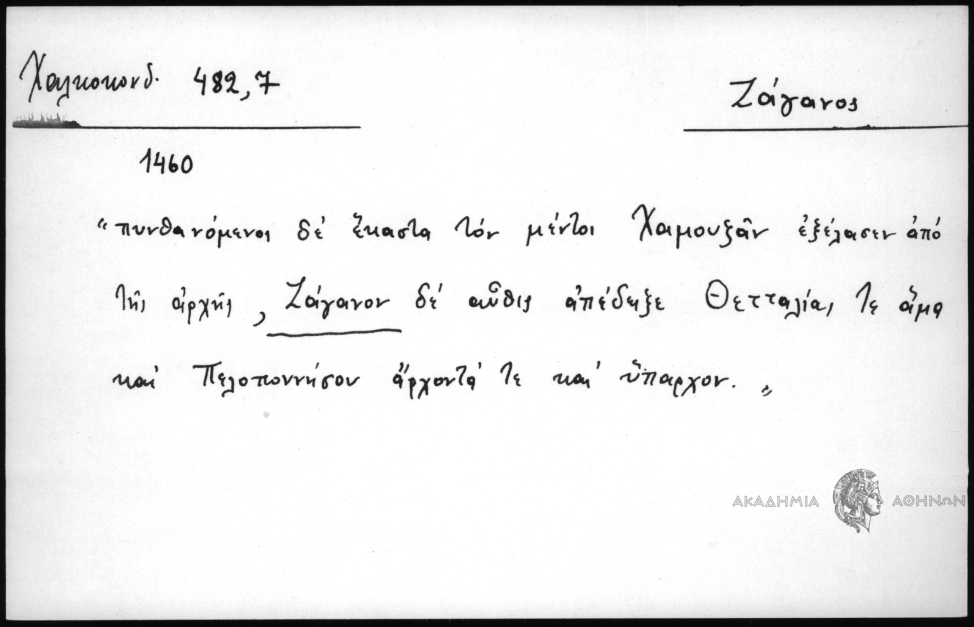 Χαλκοκονδ. 482,7
Ζάγανος
1460
"πυνθανόμενοι δέ ἕκαστα τόν μέντοι Χαμουζᾶν ἐξέλασεν ἀπό
τῆς ἀρχῆς, Ζάγανον δέ αὖθις ἀπέδειξε Θετταλίας τε ἅμα
καί Πελοποννήσου ἄρχοντά τε καί ὕπαρχον."
ΑΚΑΔΗΜΙΑ ΑΘΗΝΩΝ